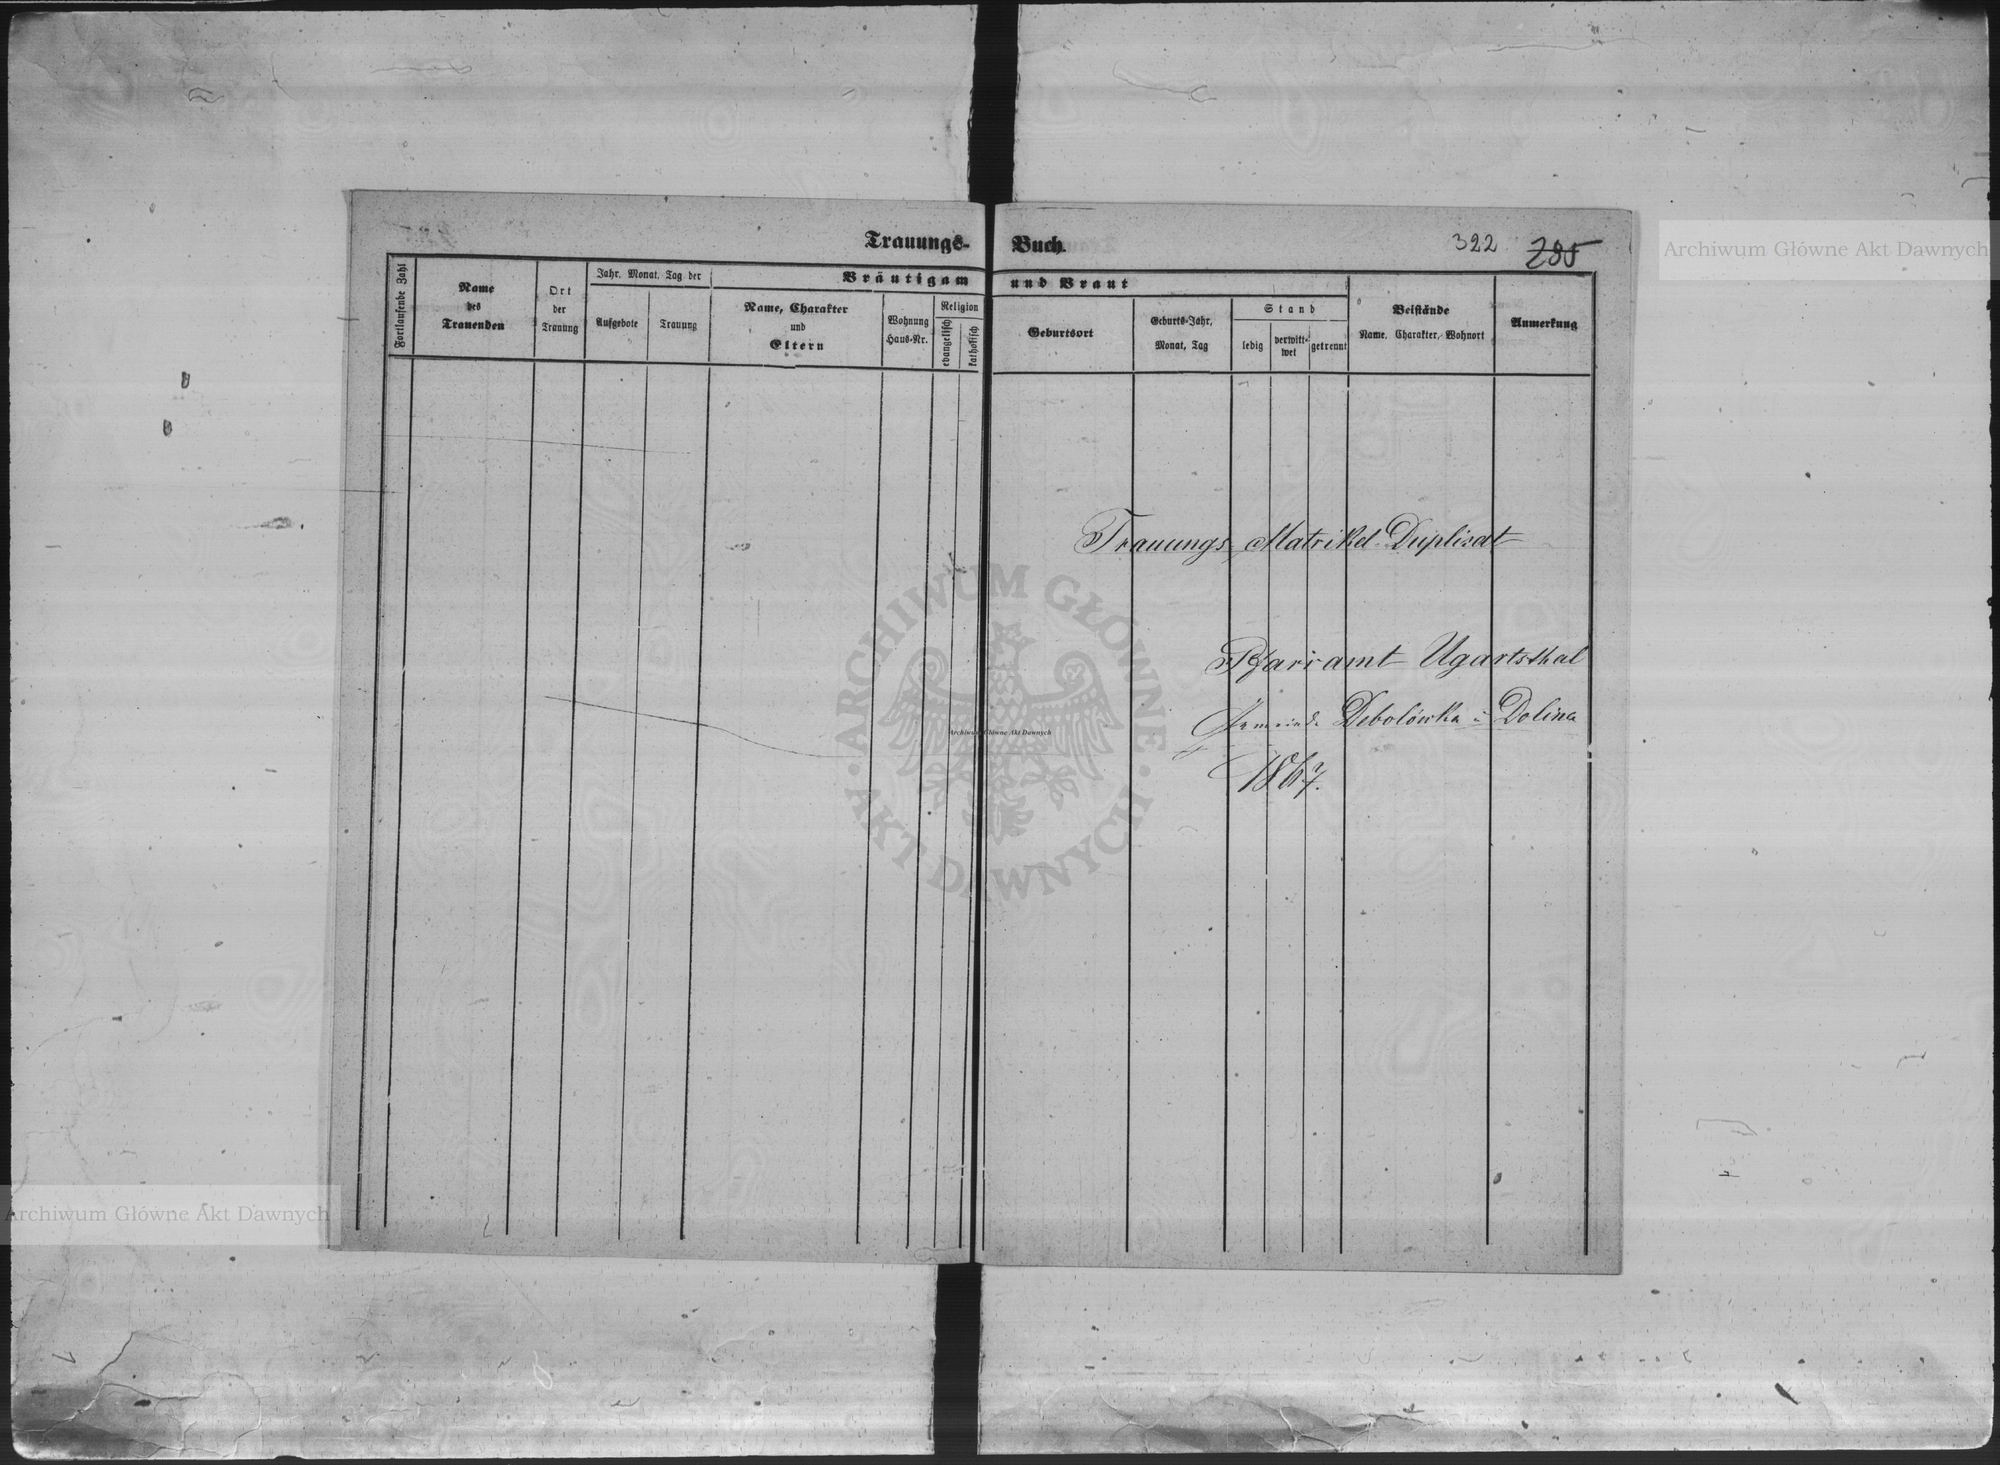 Trauungs- Buch.
322 285
Archiwum Główne Akt Dawnych
Fortlaufende Zahl
Name
des
Trauenden
Ort
der
Trauung
Jahr, Monat, Tag der
Aufgebote
Trauung
Bräutigam und Braut
Name, Charakter
und
Eltern
Wohnung
Haus-Nr.
Religion
evangelisch
katholisch
Geburtsort
Geburts-Jahr,
Monat, Tag
Stand
ledig
verwitt-
wet
getrennt
Beistände
Name, Charakter, Wohnort
Anmerkung
Trauungs Matrikel-Duplicat
Pfarramt Ugartsthal
Gemeinde Debolówka i Dolina
1867.
ARCHIWUM GŁÓWNE
AKT DAWNYCH
Archiwum Główne Akt Dawnych
Archiwum Główne Akt Dawnych